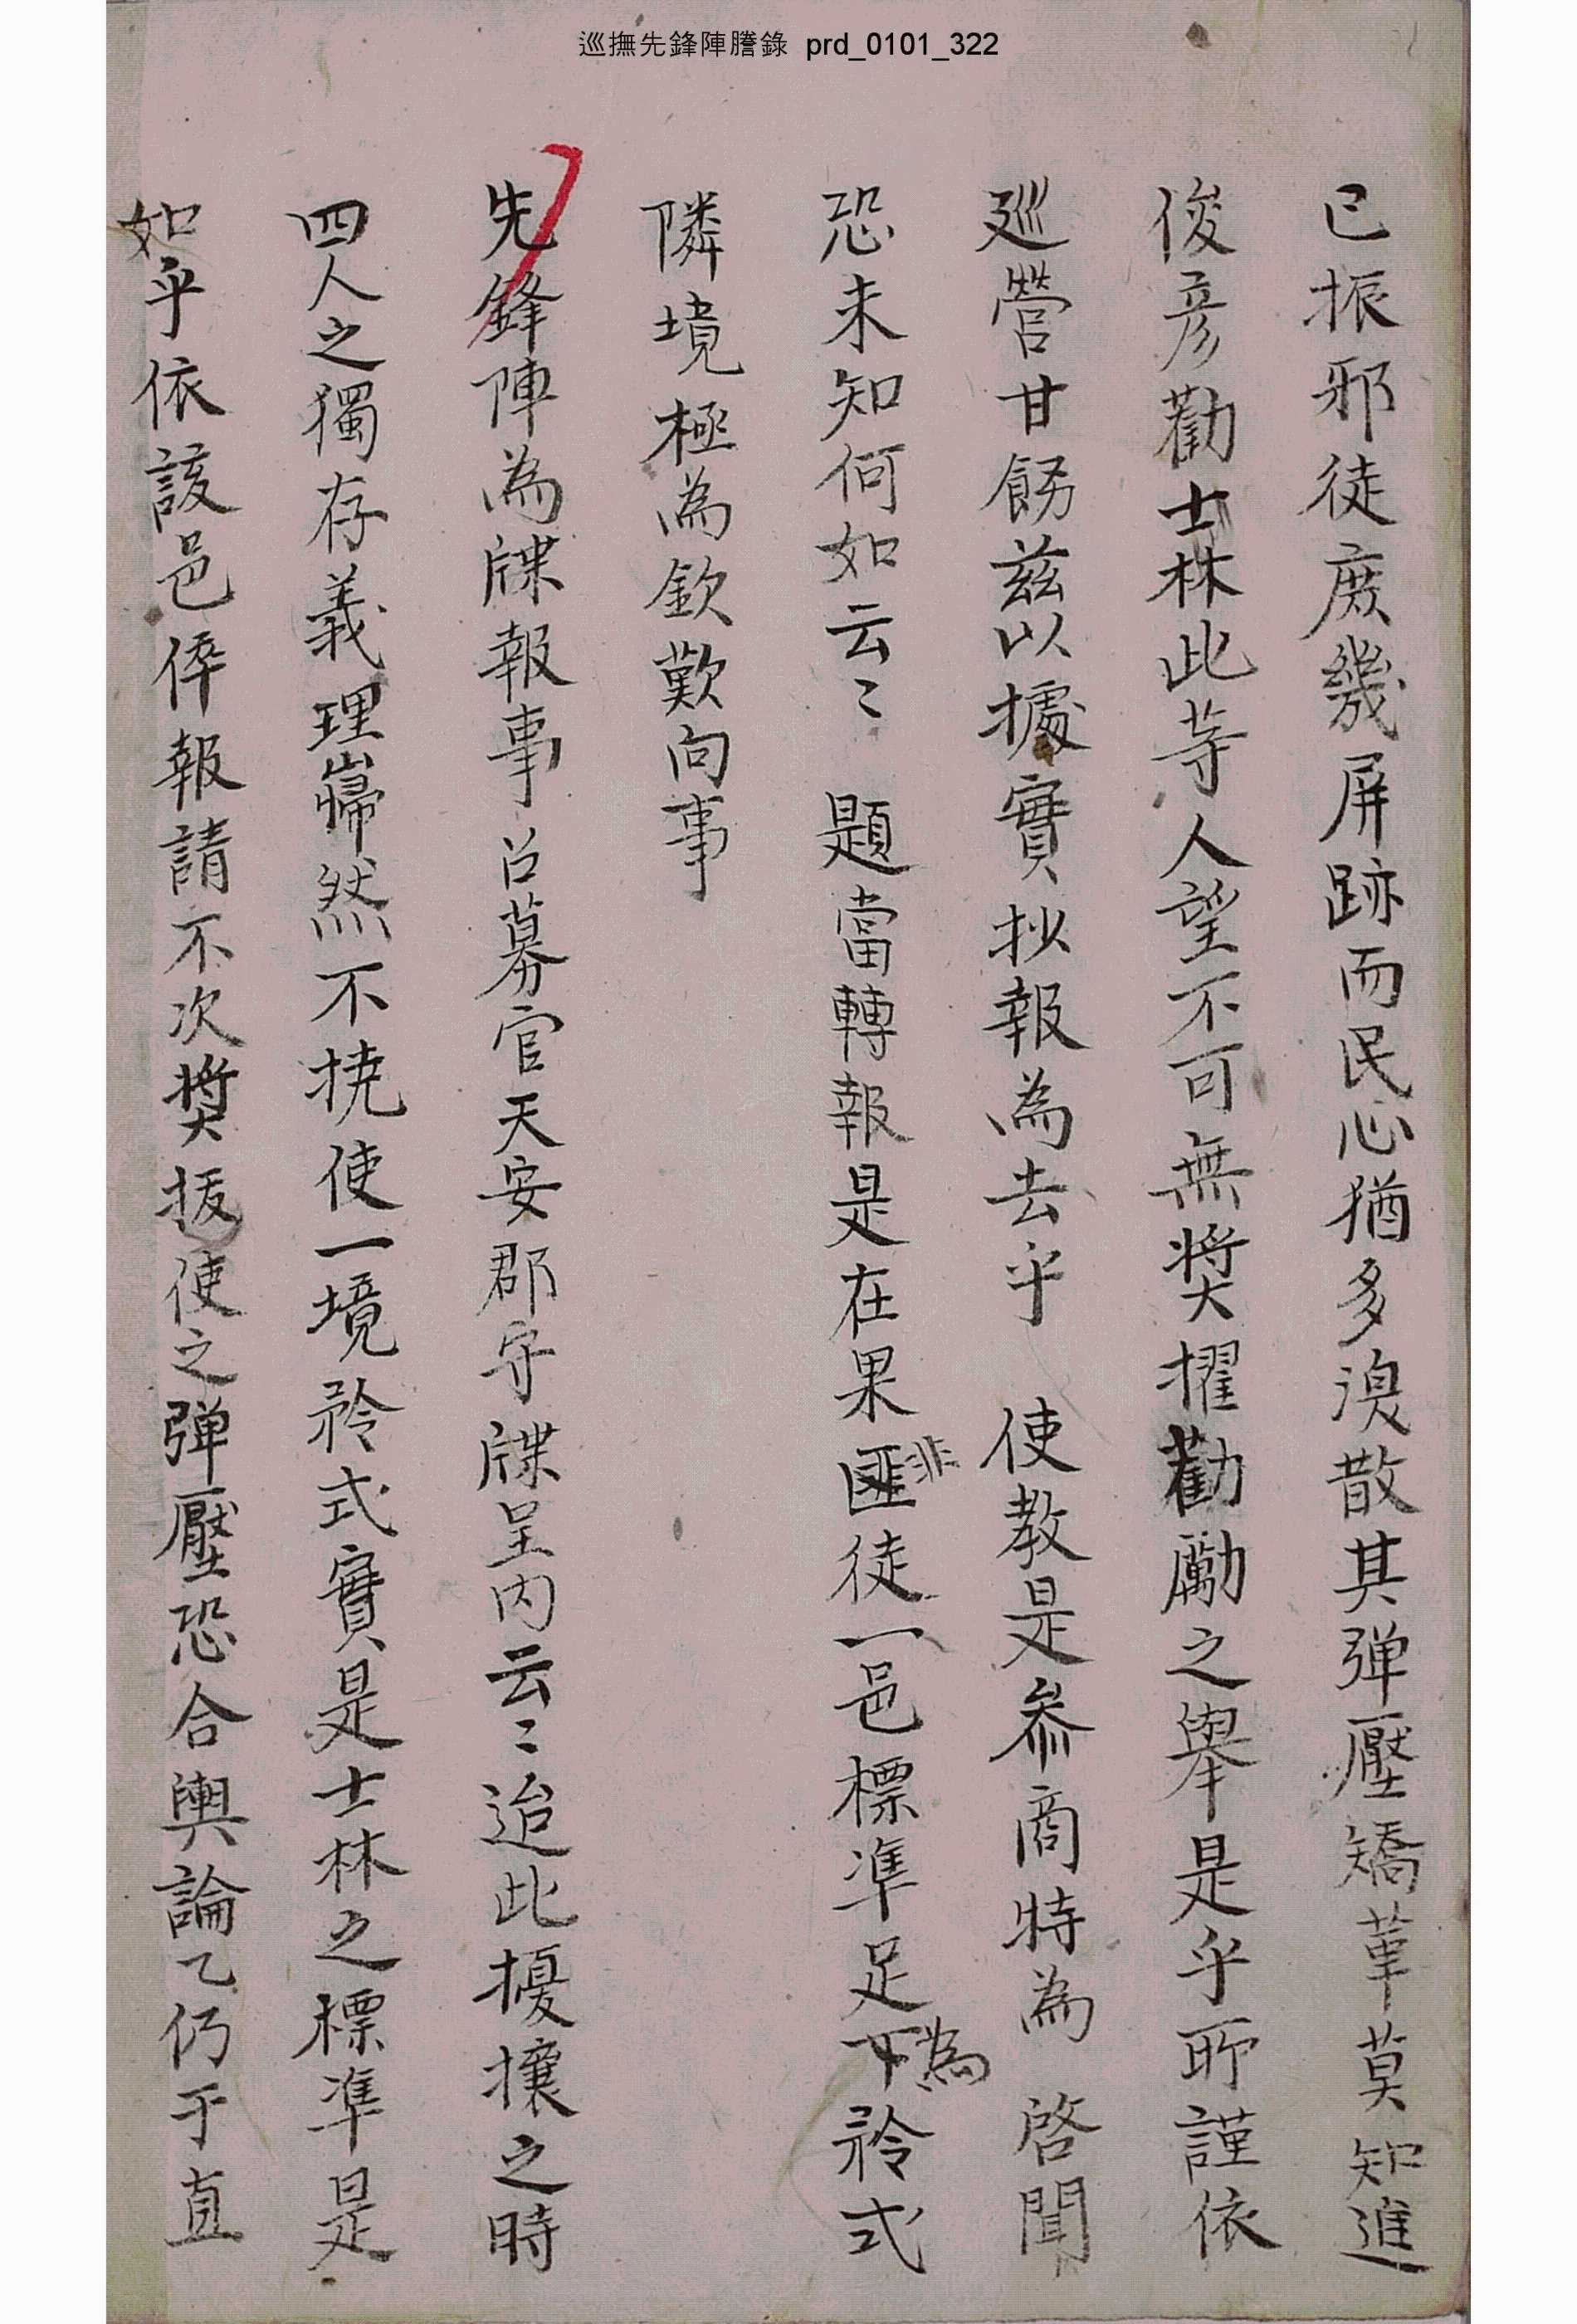 巡撫先鋒陣謄錄 prd_0101_322
已振邪徒庶幾屏跡而民心猶多渙散其弾壓矯革莫知進
俊彦勸士林此等人望不可無奬擢勸勵之擧是乎所謹依
廵營甘餙玆以據實抄報為去乎 使教是叅商特為 啓聞
恐未知何如云〻 題當轉報是在果匪徒一邑標準足下矜式
非
為
隣境極為欽歎向事
先鋒陣為牒報事召募官天安郡守牒呈內云〻迨此擾攘之時
四人之獨存義理巋然不撓使一境矜式實是士林之標準是
如乎依該邑倅報請不次奬拔使之弾壓恐合輿論乙仍于直